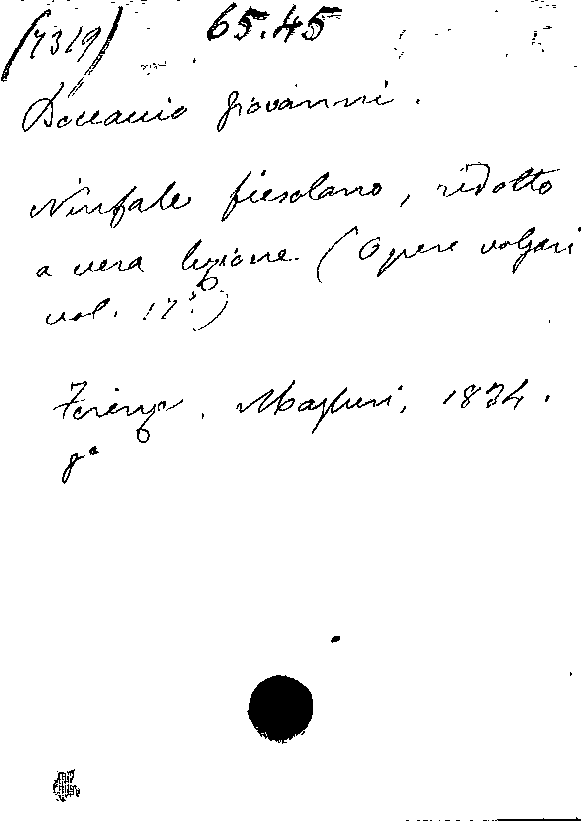 (7319) 65.45
Boccaccio Giovanni.
Ninfale fiesolano, ridotto
a vera lezione. (Opere volgari
vol. 17º.)
Firenze. Magheri, 1834.
8º